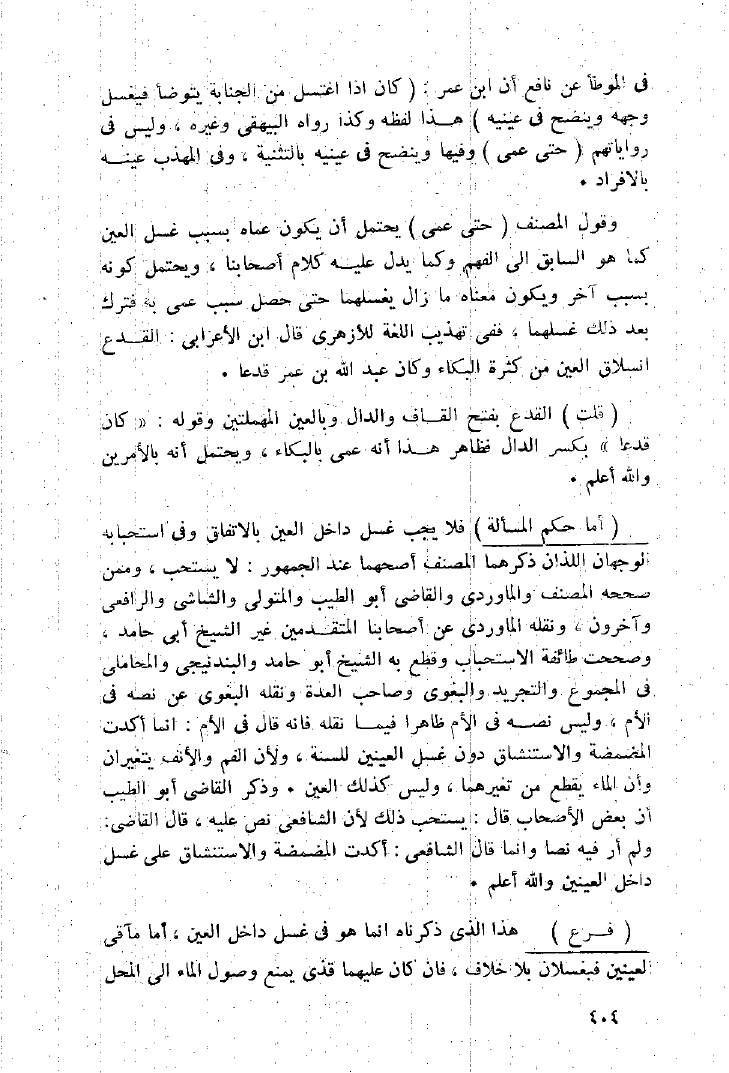 فى الموطأ عن نافع أن ابن عمر : ( كان اذا اغتسل من الجنابة يتوضأ فيغسل
وجهه وينضح فى عينيه ) هـذا لفظه وكذا رواه البيهقى وغيره ، وليس فى
رواياتهم ( حتى عمى ) وفيها وينضح فى عينيه بالتثنية ، وفى المهذب عينـــه
بالافراد •
وقول المصنف ( حتى عمى ) يحتمل أن يكون عماه بسبب غسل العين
كما هو السابق الى الفهم وكما يدل عليـــه كلام أصحابنا ، ويحتمل كونه
بسبب آخر ويكون معناه ما زال يغسلهما حتى حصل سبب عمى به فترك
بعد ذلك غسلهما ، ففى تهذيب اللغة للأزهرى قال ابن الأعرابى : القـــدع
انسلاق العين من كثرة البكاء وكان عبد الله بن عمر قدعا •
( قلت ) القدع بفتح القـاف والدال وبالعين المهملتين وقوله : « كان
قدعا » بكسر الدال فظاهر هـــذا أنه عمى بالبكاء ، ويحتمل أنه بالأمرين
والله أعلم •
( أما حكم المسألة ) فلا يجب غسل داخل العين بالاتفاق وفى استحبابه
الوجهان اللذان ذكرهما المصنف أصحهما عند الجمهور : لا يستحب ، وممن
صححه المصنف والماوردى والقاضى أبو الطيب والمتولى والشاشى والرافعى
وآخرون ، ونقله الماوردى عن أصحابنا المتقـــدمين غير الشيخ أبى حامد ،
وصححت طائفة الاستحباب وقطع به الشيخ أبو حامد والبندنيجى والمحاملى
فى المجموع والتجريد والبغوى وصاحب العدة ونقله البغوى عن نصه فى
الأم ، وليس نصـــه فى الأم ظاهرا فيمـــا نقله فانه قال فى الأم : انما أكدت
المضمضة والاستنشاق دون غسل العينين للسنة ، ولأن الفم والأنف يتغيران
وأن الماء يقطع من تغيرهما ، وليس كذلك العين • وذكر القاضى أبو الطيب
أن بعض الأصحاب قال : يستحب ذلك لأن الشافعى نص عليه ، قال القاضى:
ولم أر فيه نصا وانما قال الشافعى : أكدت المضمضة والاستنشاق على غسل
داخل العينين والله أعلم •
( فـــرع ) هذا الذى ذكرناه انما هو فى غسل داخل العين ، أما مآقى
العينين فيغسلان بلا خلاف ، فان كان عليهما قذى يمنع وصول الماء الى المحل
٤٠٤